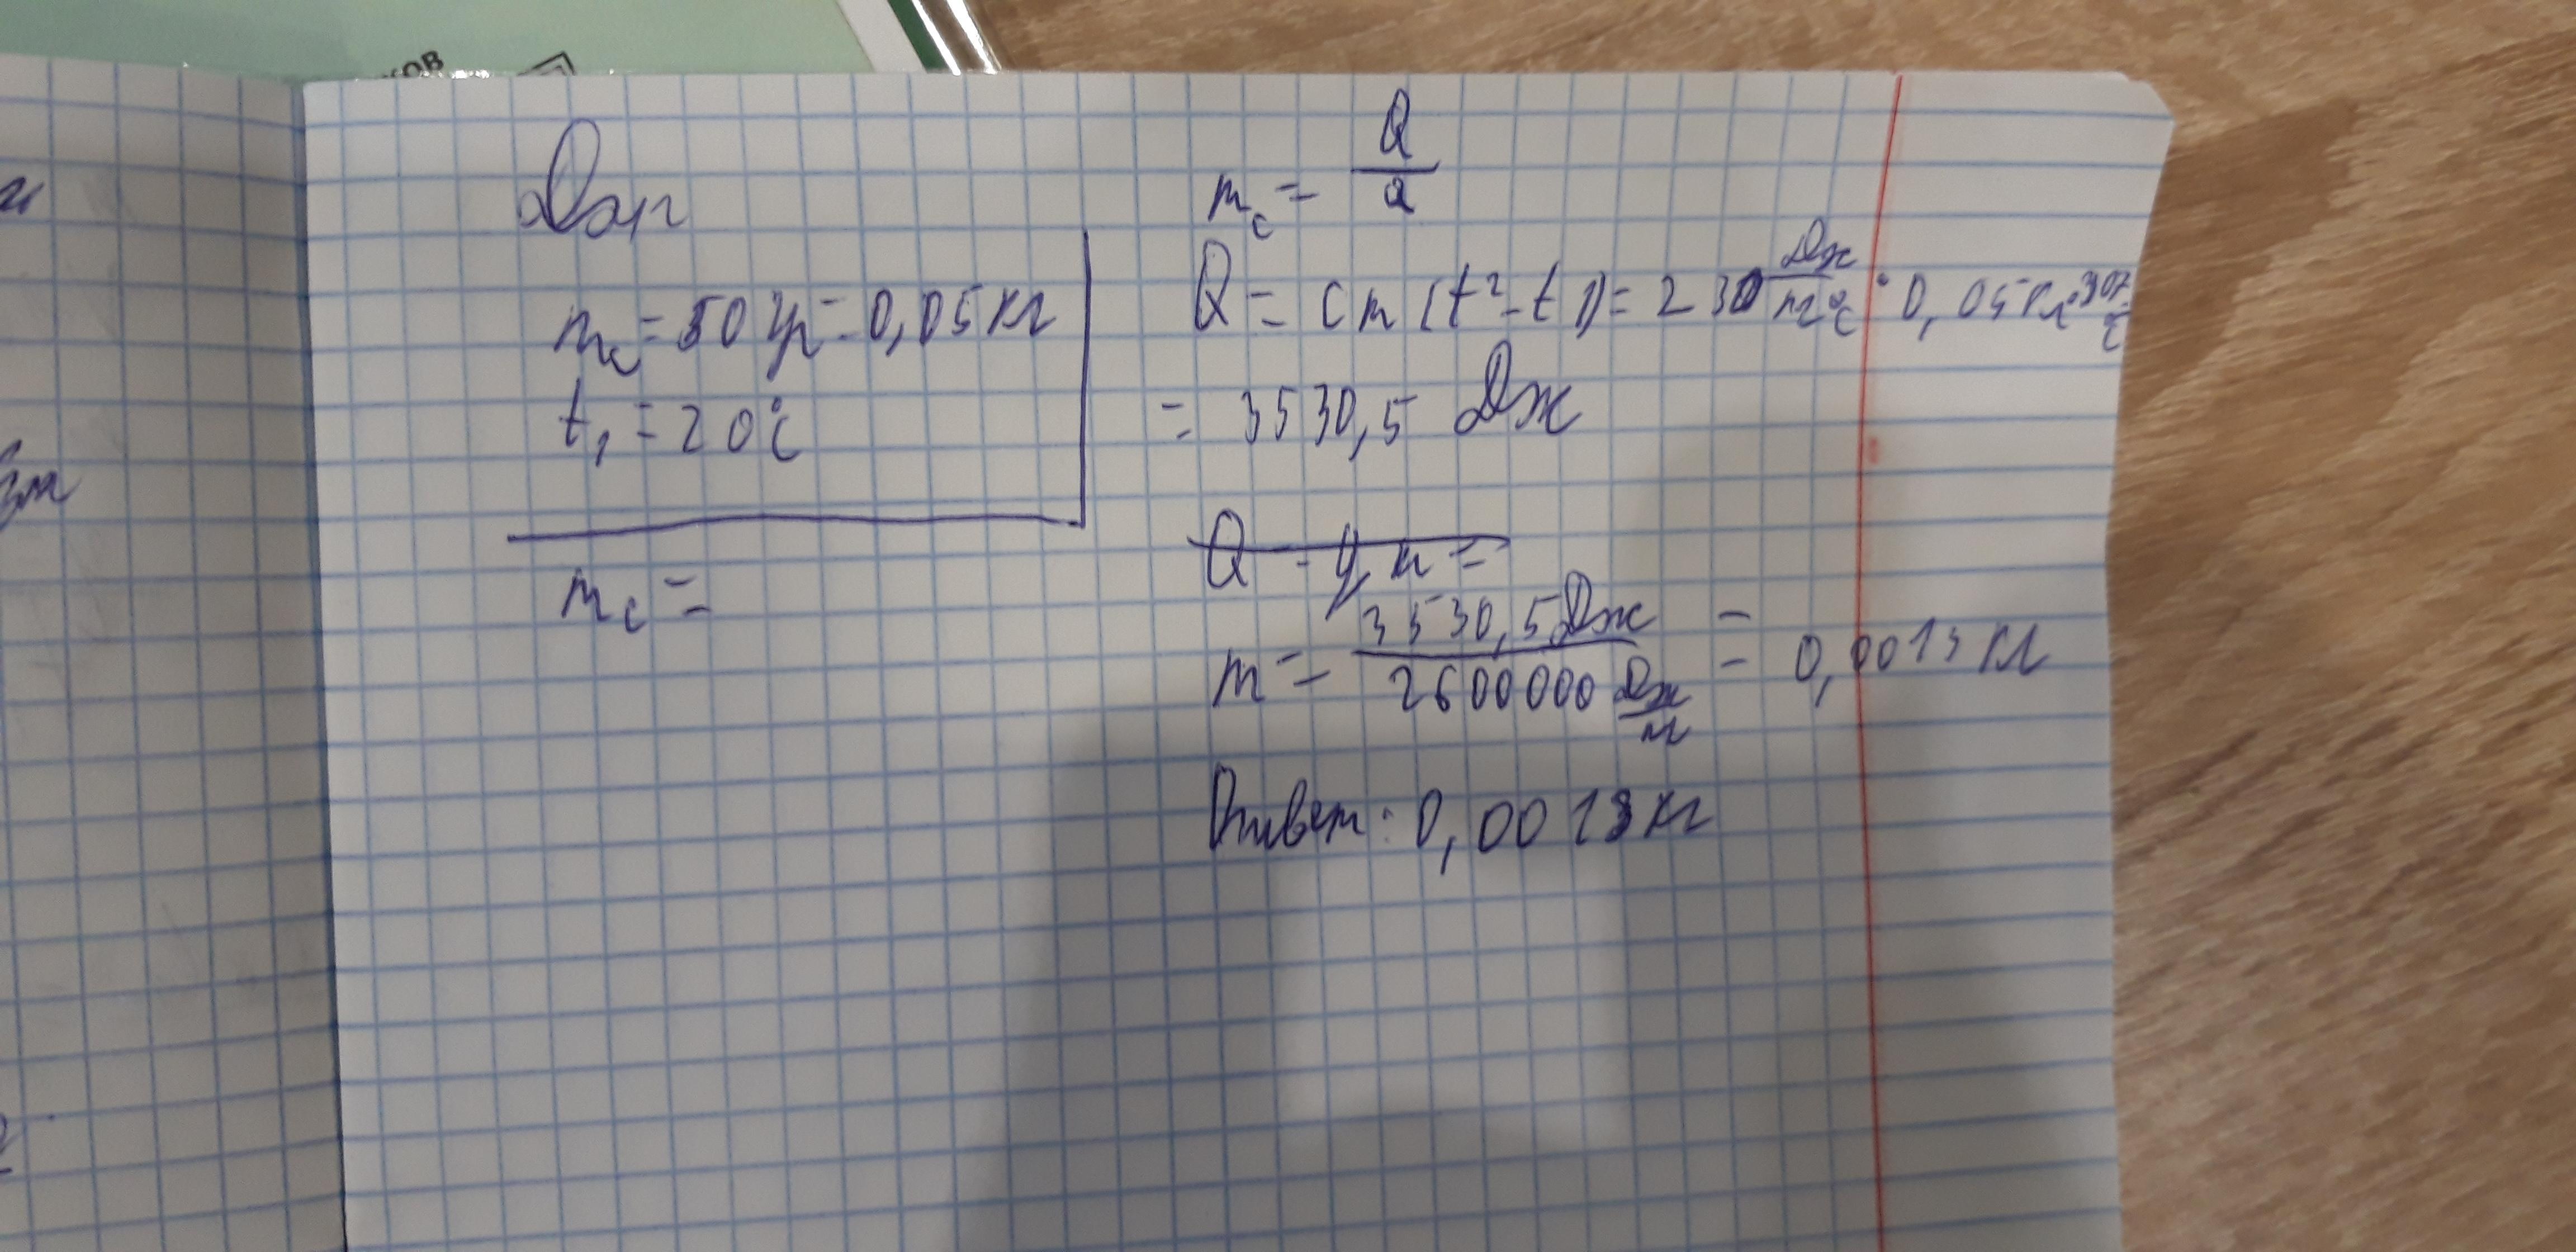 ков
Дан
mc = 50 гр = 0,05 кг
t₁ = 20°c
mc =
mc = Q/q
Q = cm(t²-t1) = 230 Дж/кг°c · 0,05 кг · 307°c
= 3530,5 Дж
Q = qm =
m = 3530,5 Дж / 2600000 Дж/кг = = 0,0013 кг
Ответ: 0,0013 кг